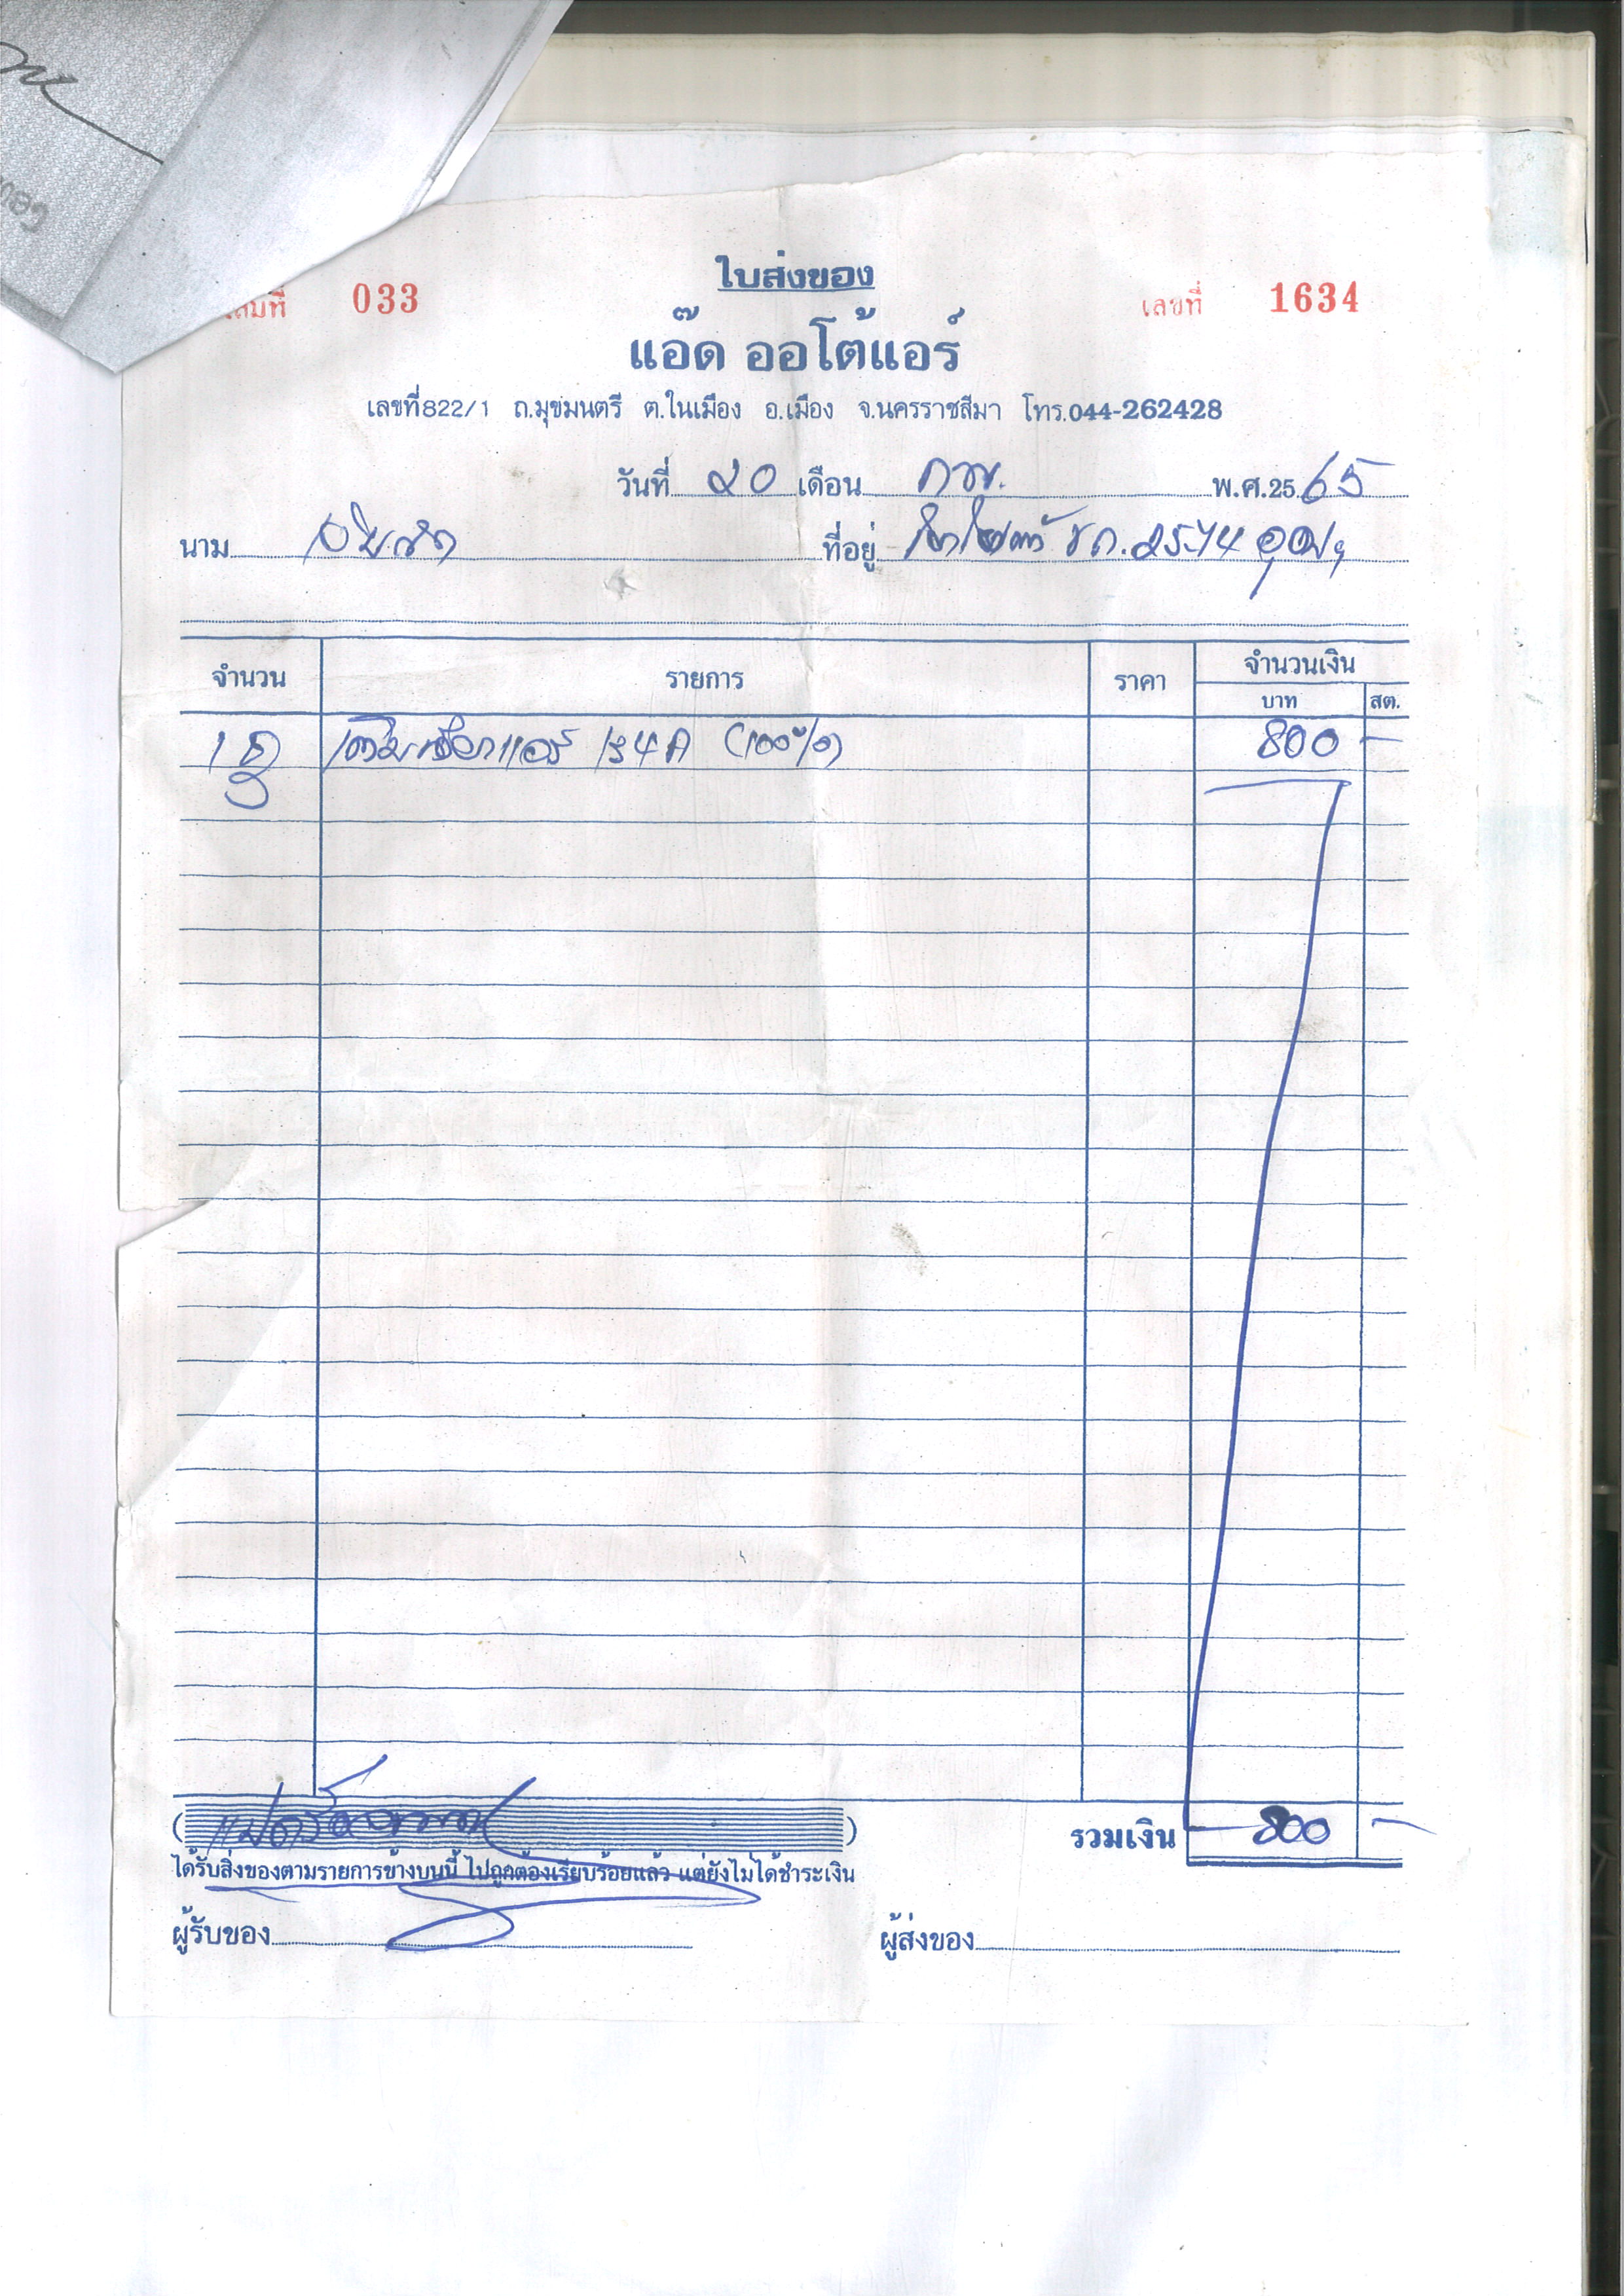 ใบส่งของ
เล่มที่ 033 เลขที่ 1634
แอ๊ด ออโต้แอร์
เลขที่822/1 ถ.มุขมนตรี ต.ในเมือง อ.เมือง จ.นครราชสีมา โทร.044-262428
วันที่ 20 เดือน กพ. พ.ศ.25 65
นาม เงินสด ที่อยู่
จำนวน รายการ ราคา จำนวนเงิน
บาท สต.
1 เติมน้ำยาแอร์ 134A (100%) 800 -
(แปดร้อยบาท) รวมเงิน 800 -
ได้รับสิ่งของตามรายการข้างบนนี้ ไปถูกต้องเรียบร้อยแล้ว แต่ยังไม่ได้ชำระเงิน
ผู้รับของ ผู้ส่งของ